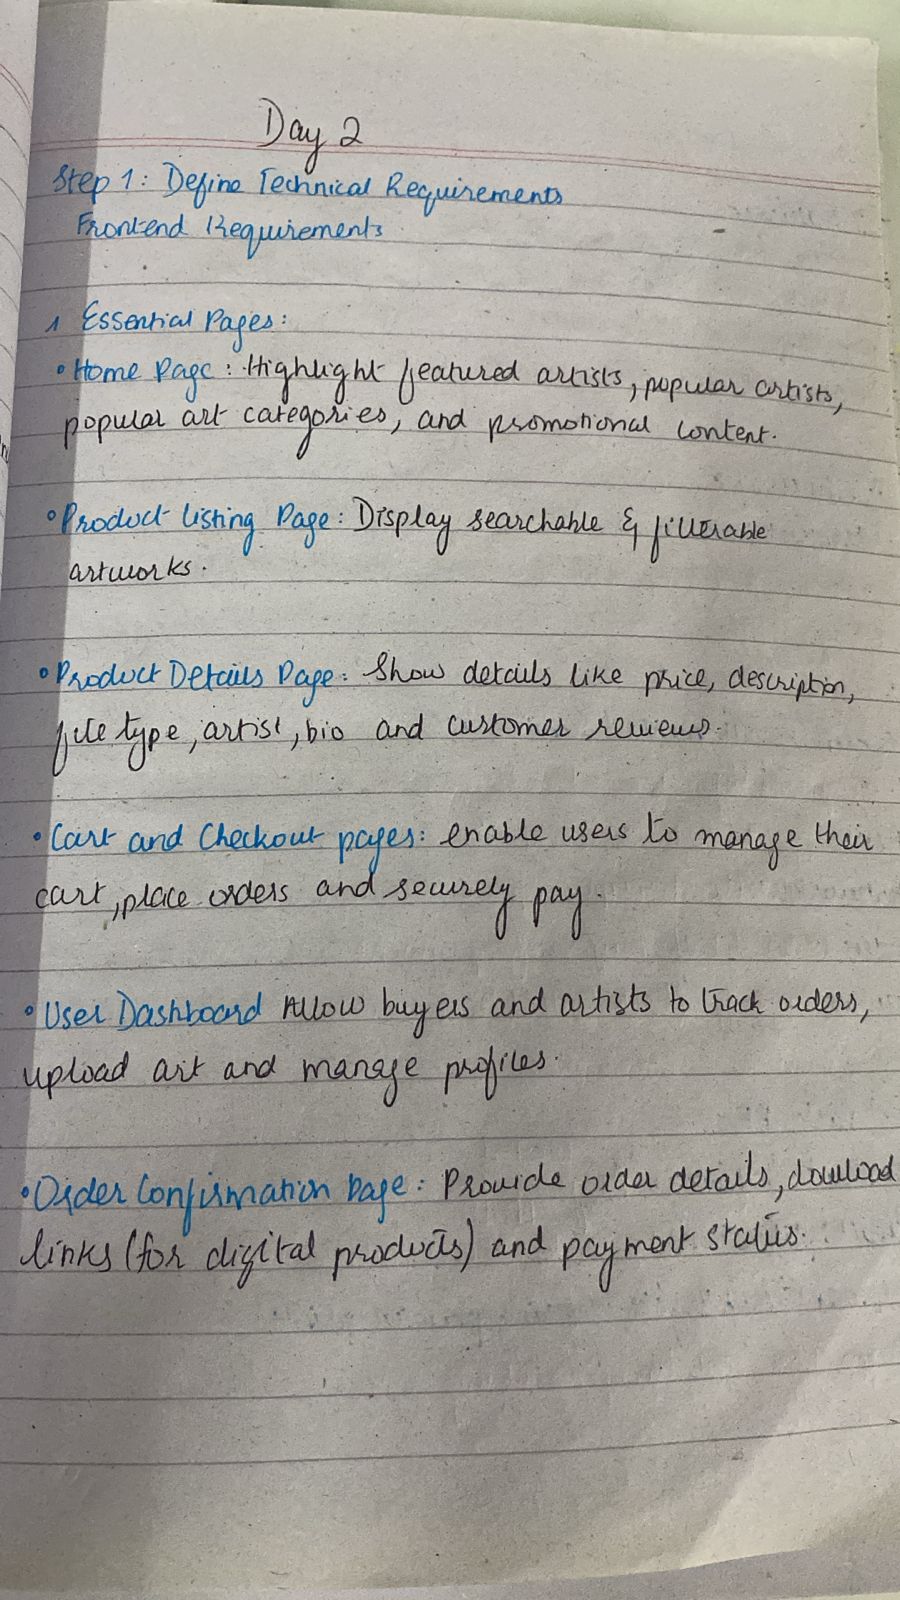 Day 2
Step 1: Define Technical Requirements
Frontend Requirements
1 Essential Pages:
• Home Page: Highlight featured artists, popular artists,
popular art categories, and promotional content.
• Product listing Page: Display searchable & filterable
artworks.
• Product Details Page: Show details like price, description,
file type, artist, bio and customer reviews.
• Cart and Checkout pages: enable users to manage their
cart, place orders and securely pay.
• User Dashboard Allow buyers and artists to track orders,
upload art and manage profiles.
• Order Confirmation Page: Provide order details, dowload
links (for digital products) and payment status.